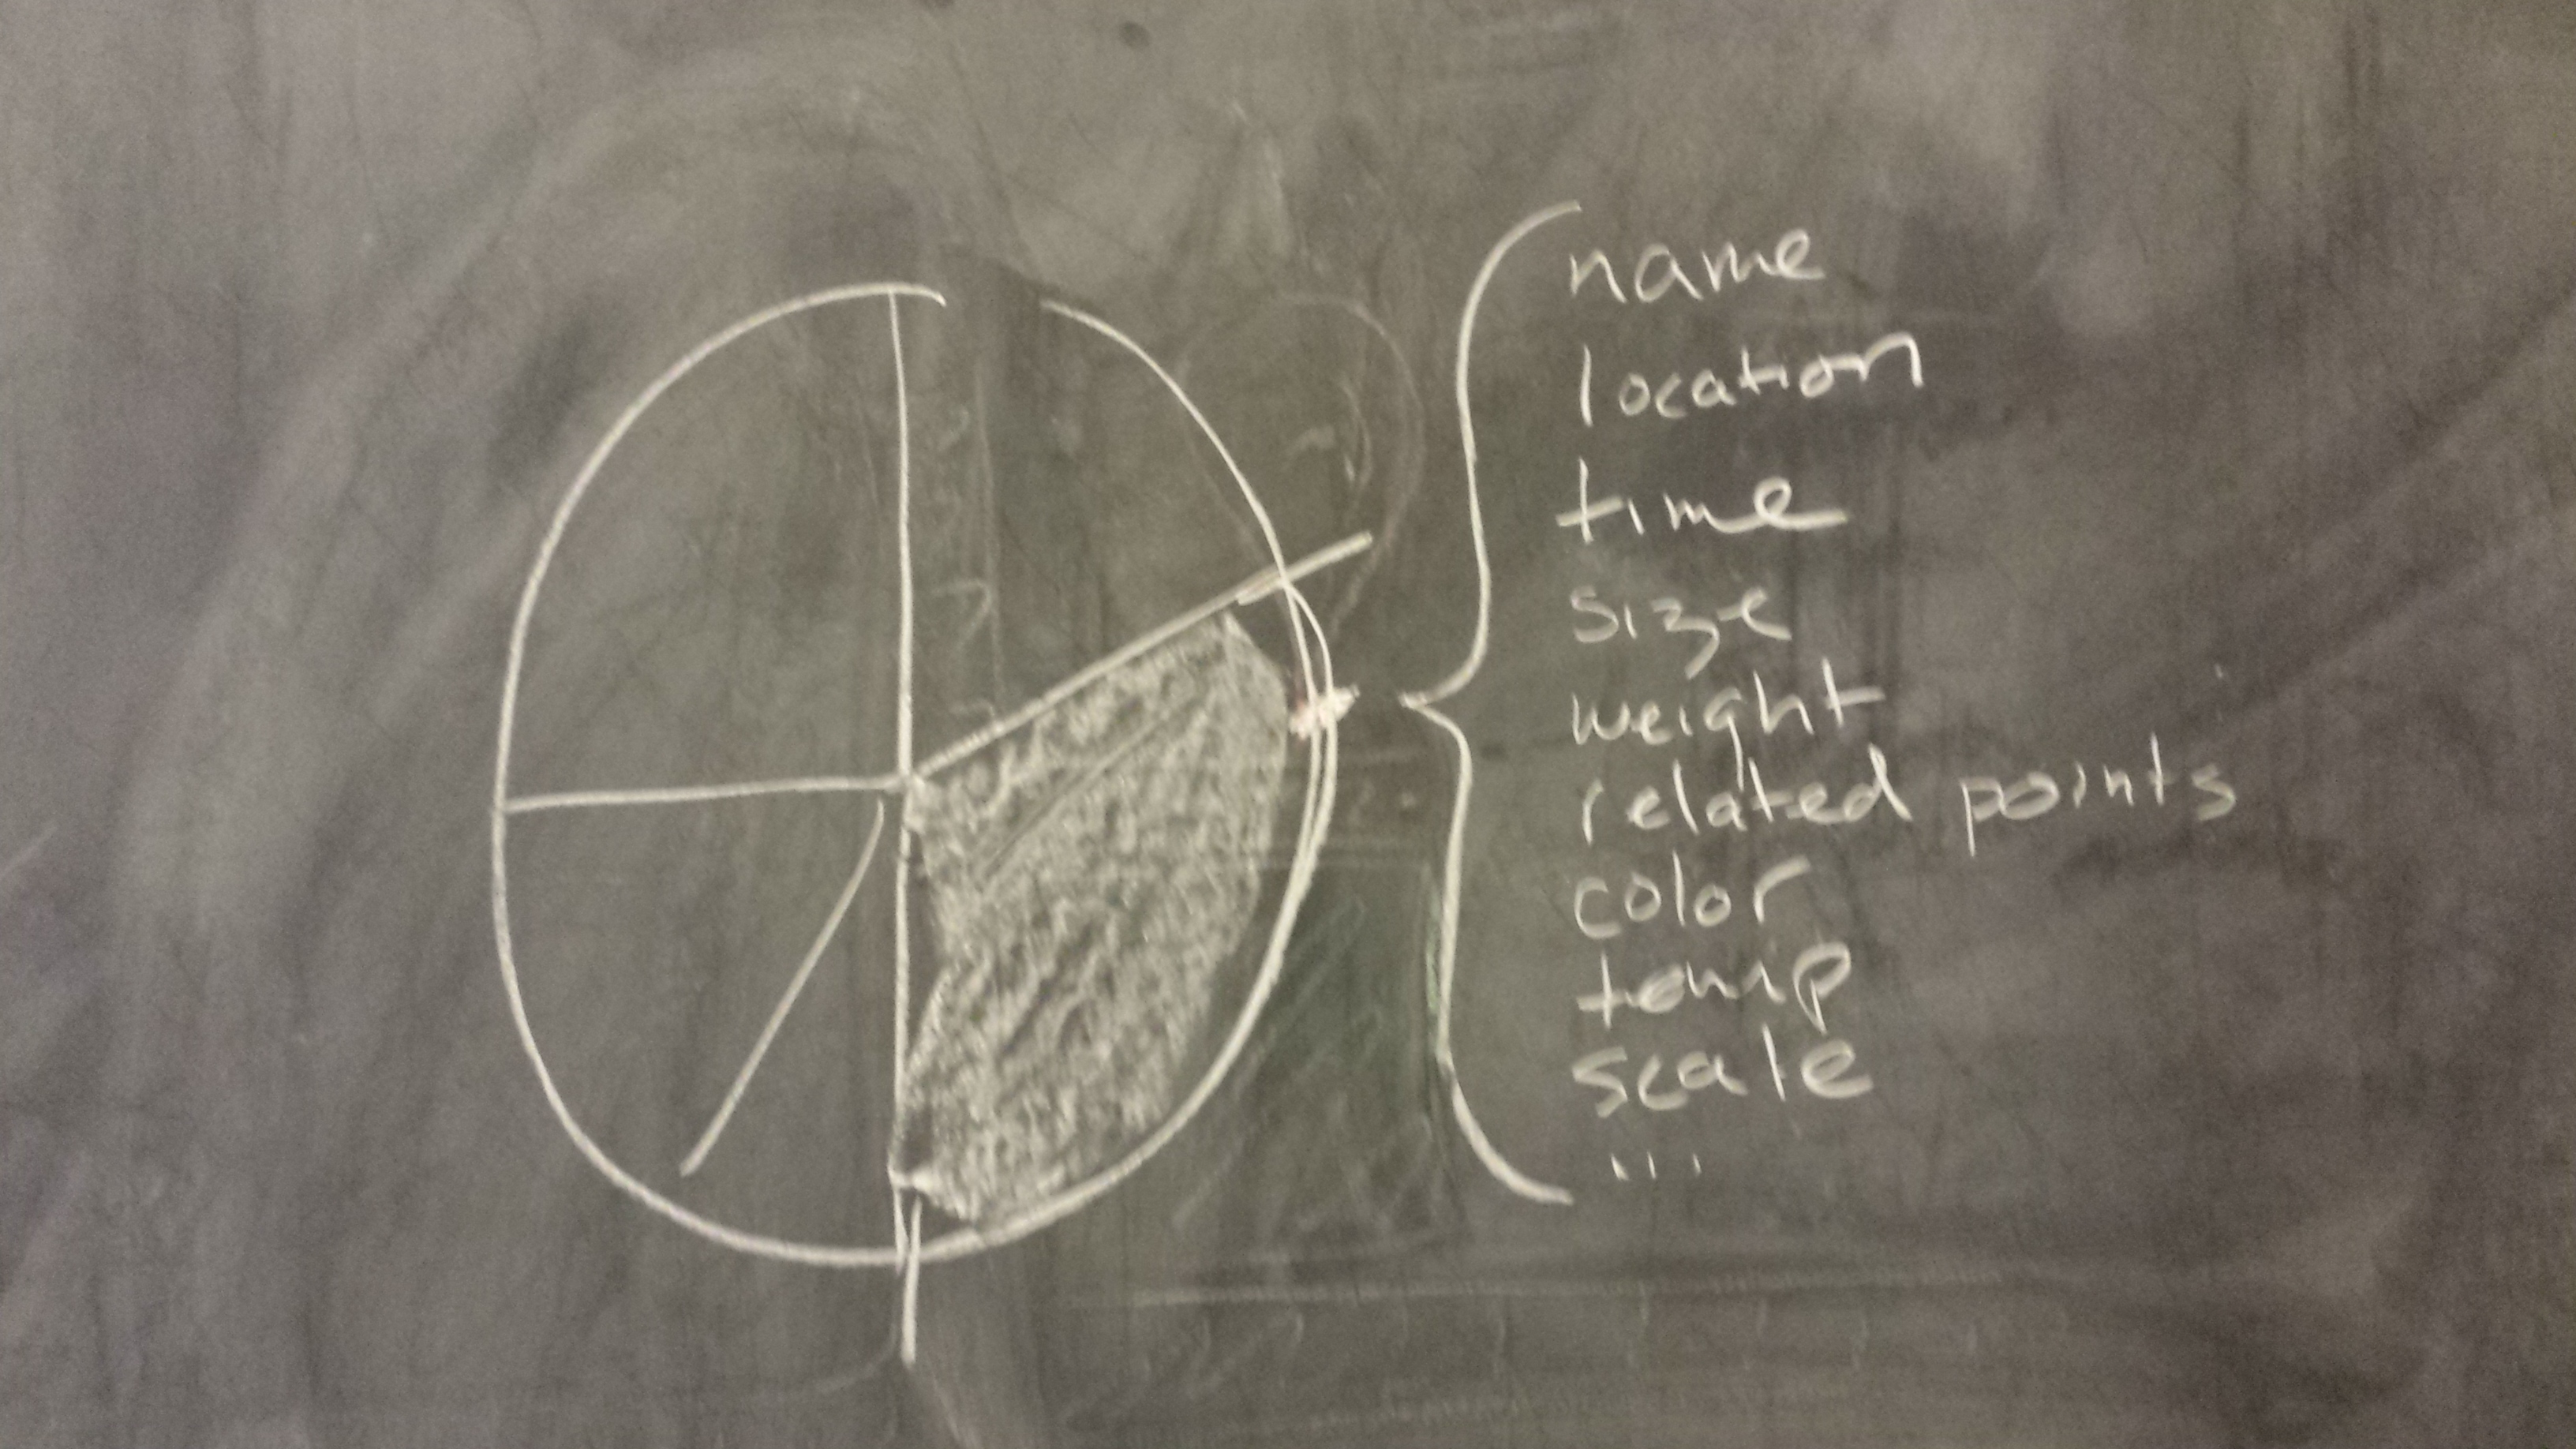 name
location
time
size
weight
related points
color
temp
scale
...